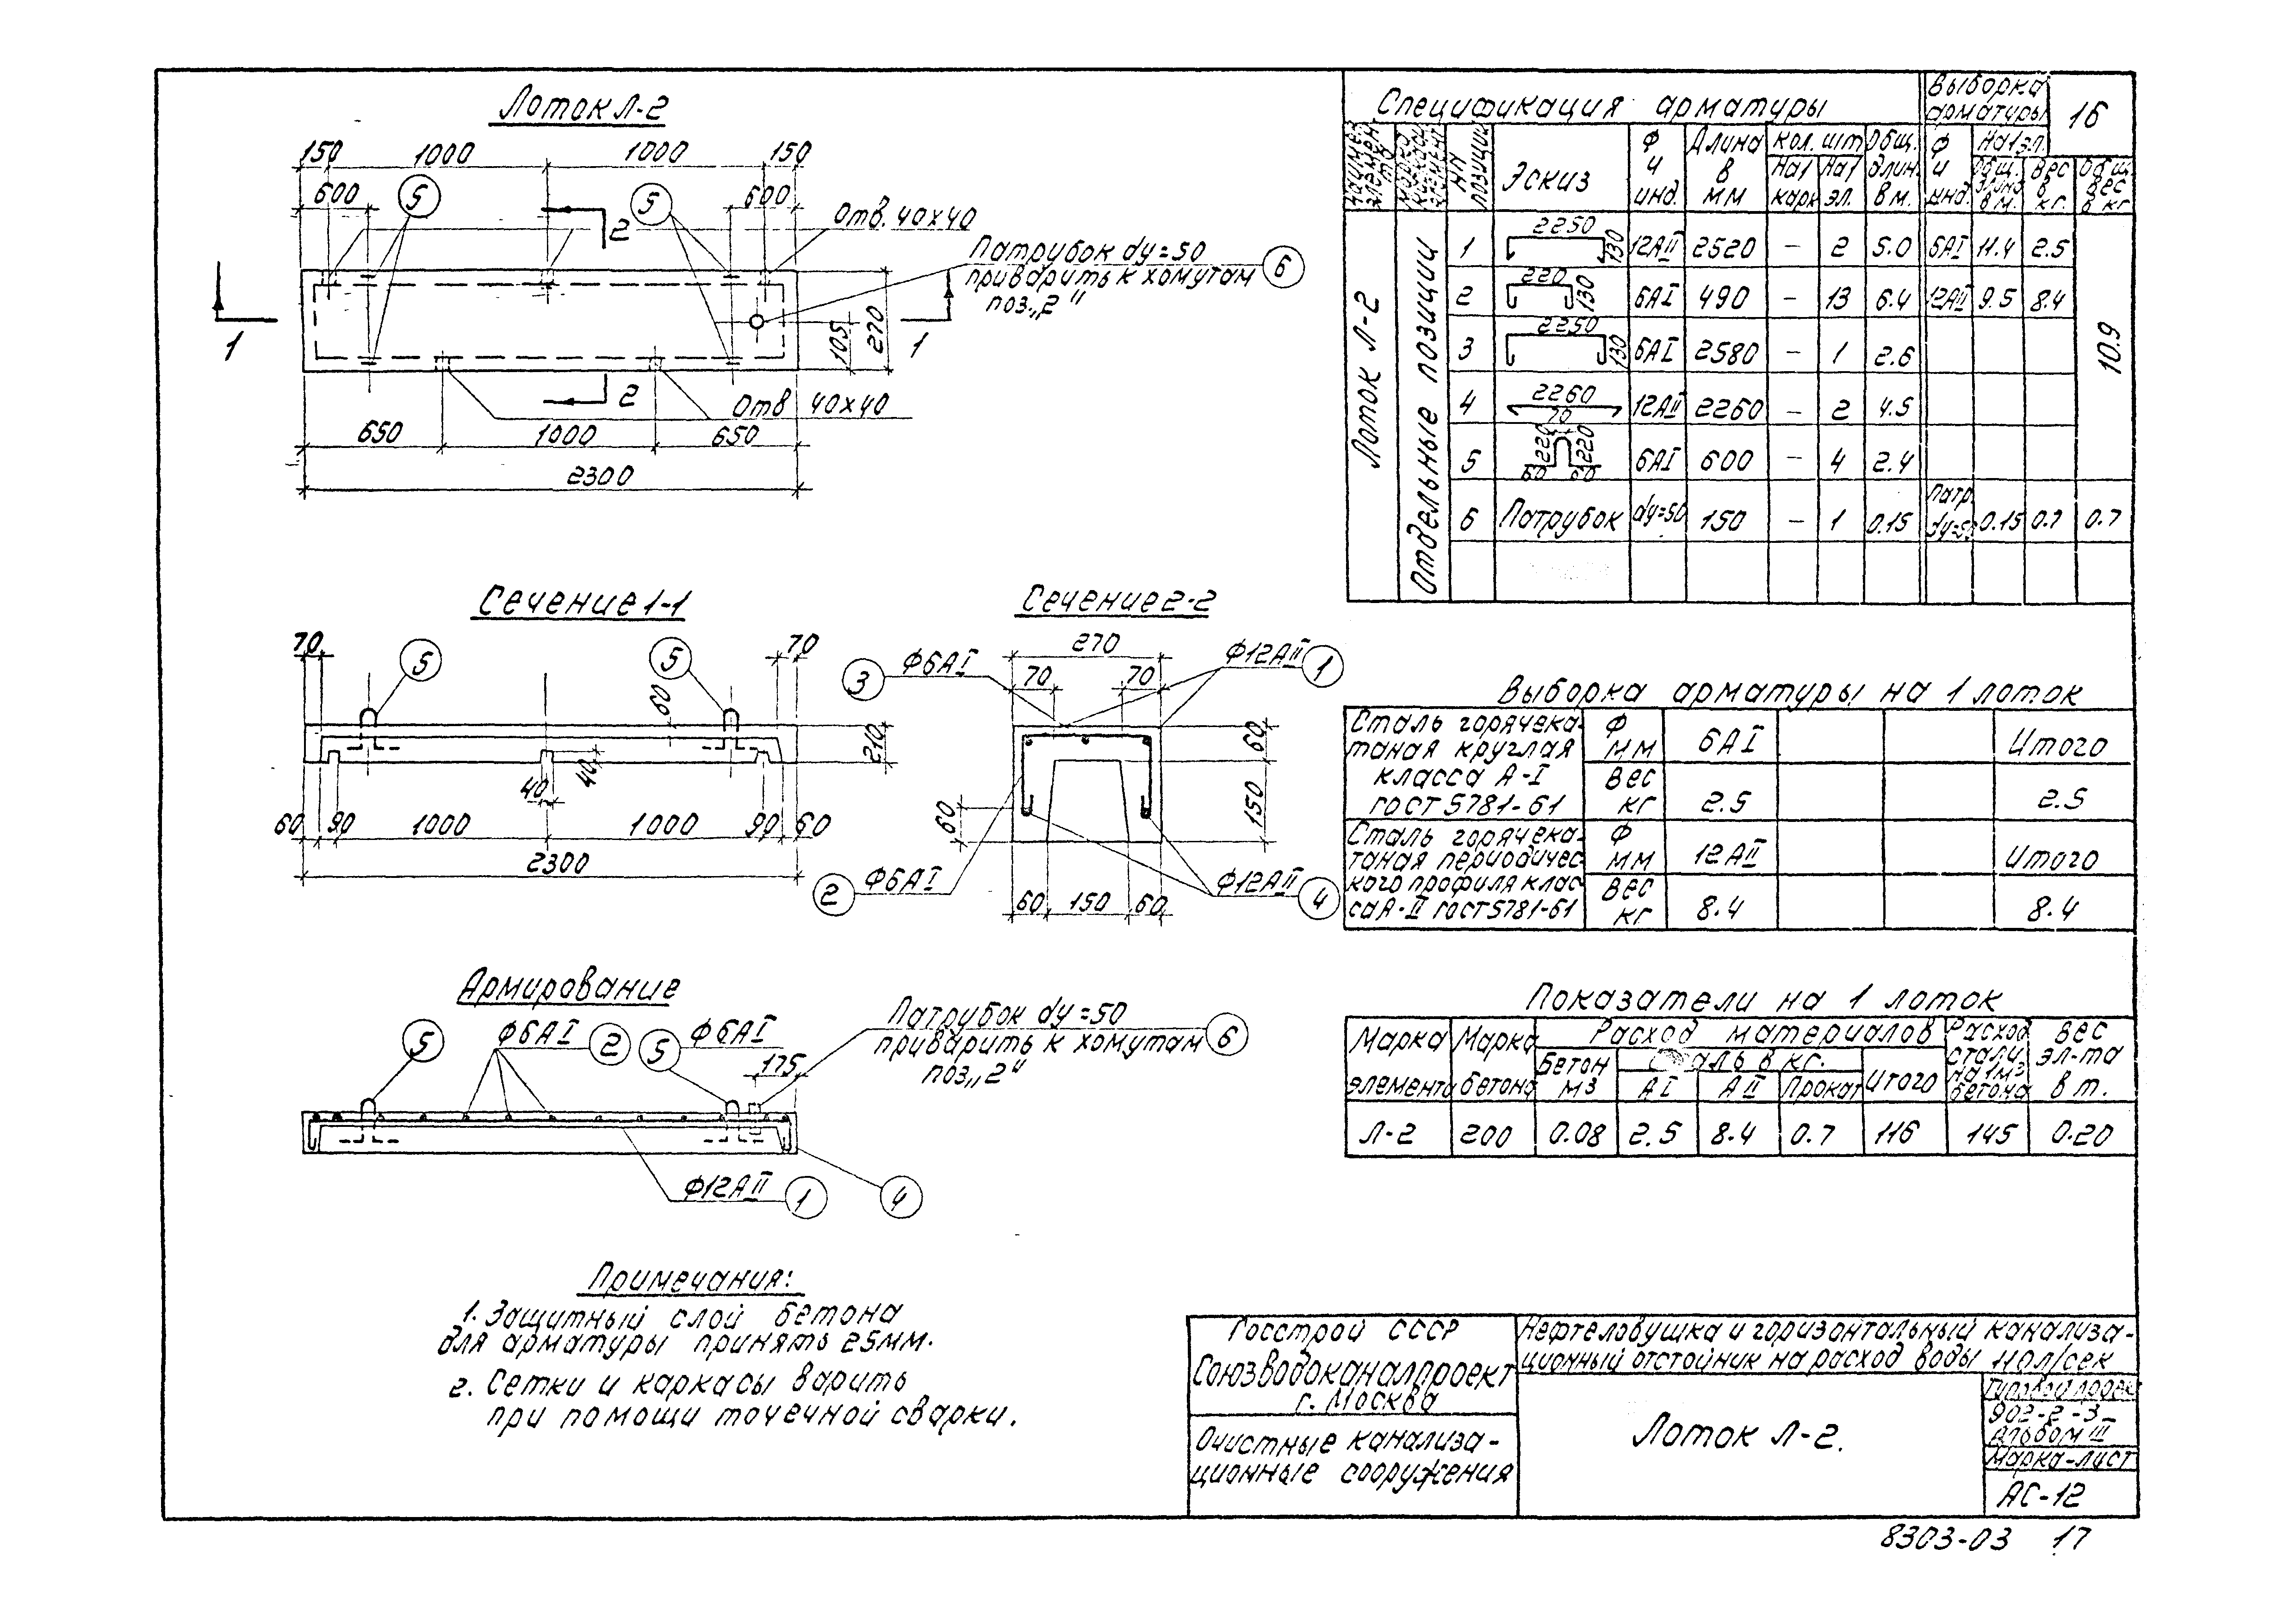 Лоток Л-2
150 1000 1000 150
600 5 5 600
2
Отв. 40×40
Патрубок dy=50
приварить к хомутам 6
поз. „2“
1 1
105 270
2
Отв 40×40
650 1000 650
2300
Сечение 1-1
70 5 5 70
60
210
40 40
60 90 1000 1000 90 60
2300
Сечение 2-2
270
3 Ф6АI Ф12АII 1
70 70
60
150
60
2 Ф6АI Ф12АII 4
60 150 60
Армирование
5 Ф6АI 2 5 Ф6АI
175
Патрубок dy=50
приварить к хомутам 6
поз „2“
Ф12АII 1 4
Примечания:
1. Защитный слой бетона
для арматуры принять 25мм.
2. Сетки и каркасы варить
при помощи точечной сварки.
Спецификация арматуры
Выборка
арматуры
16
NN позиций
Эскиз
Ф и инд.
Длина в мм
Кол. шт
На 1 карк
На 1 эл.
Общ. длин. в м.
Ф и инд.
На 1 эл.
Общ. длина в м.
Вес в кг.
Общ. вес в кг
Лоток Л-2
Отдельные позиции
1 2250 130 12АII 2520 – 2 5.0 6АI 11.4 2.5
2 220 130 6АI 490 – 13 6.4 12АII 9.5 8.4
10.9
3 2250 130 6АI 2580 – 1 2.6
4 2260 12АII 2260 – 2 4.5
5 70 220 220 60 60 6АI 600 – 4 2.4
6 Патрубок dy=50 150 – 1 0.15 Патр. dy=50 0.15 0.7 0.7
Выборка арматуры на 1 лоток
Сталь горячека-
таная круглая
класса А-I
ГОСТ 5781-61
Ф мм 6АI Итого
Вес кг 2.5 2.5
Сталь горячека-
таная периодичес-
кого профиля клас-
са А-II ГОСТ 5781-61
Ф мм 12АII Итого
Вес кг 8.4 8.4
Показатели на 1 лоток
Марка элемента
Марка бетона
Расход материалов
Бетон м3
Сталь в кг.
АI АII Прокат Итого
Расход стали на 1м3 бетона
Вес эл-та в т.
Л-2 200 0.08 2.5 8.4 0.7 116 145 0.20
Госстрой СССР
Союзводоканалпроект
г. Москва
Очистные канализа-
ционные сооружения
Нефтеловушка и горизонтальный канализа-
ционный отстойник на расход воды 110л/сек
Лоток Л-2.
Типовой проект
902-2-3
Альбом III
Марка-лист
АС-12
8303-03 17